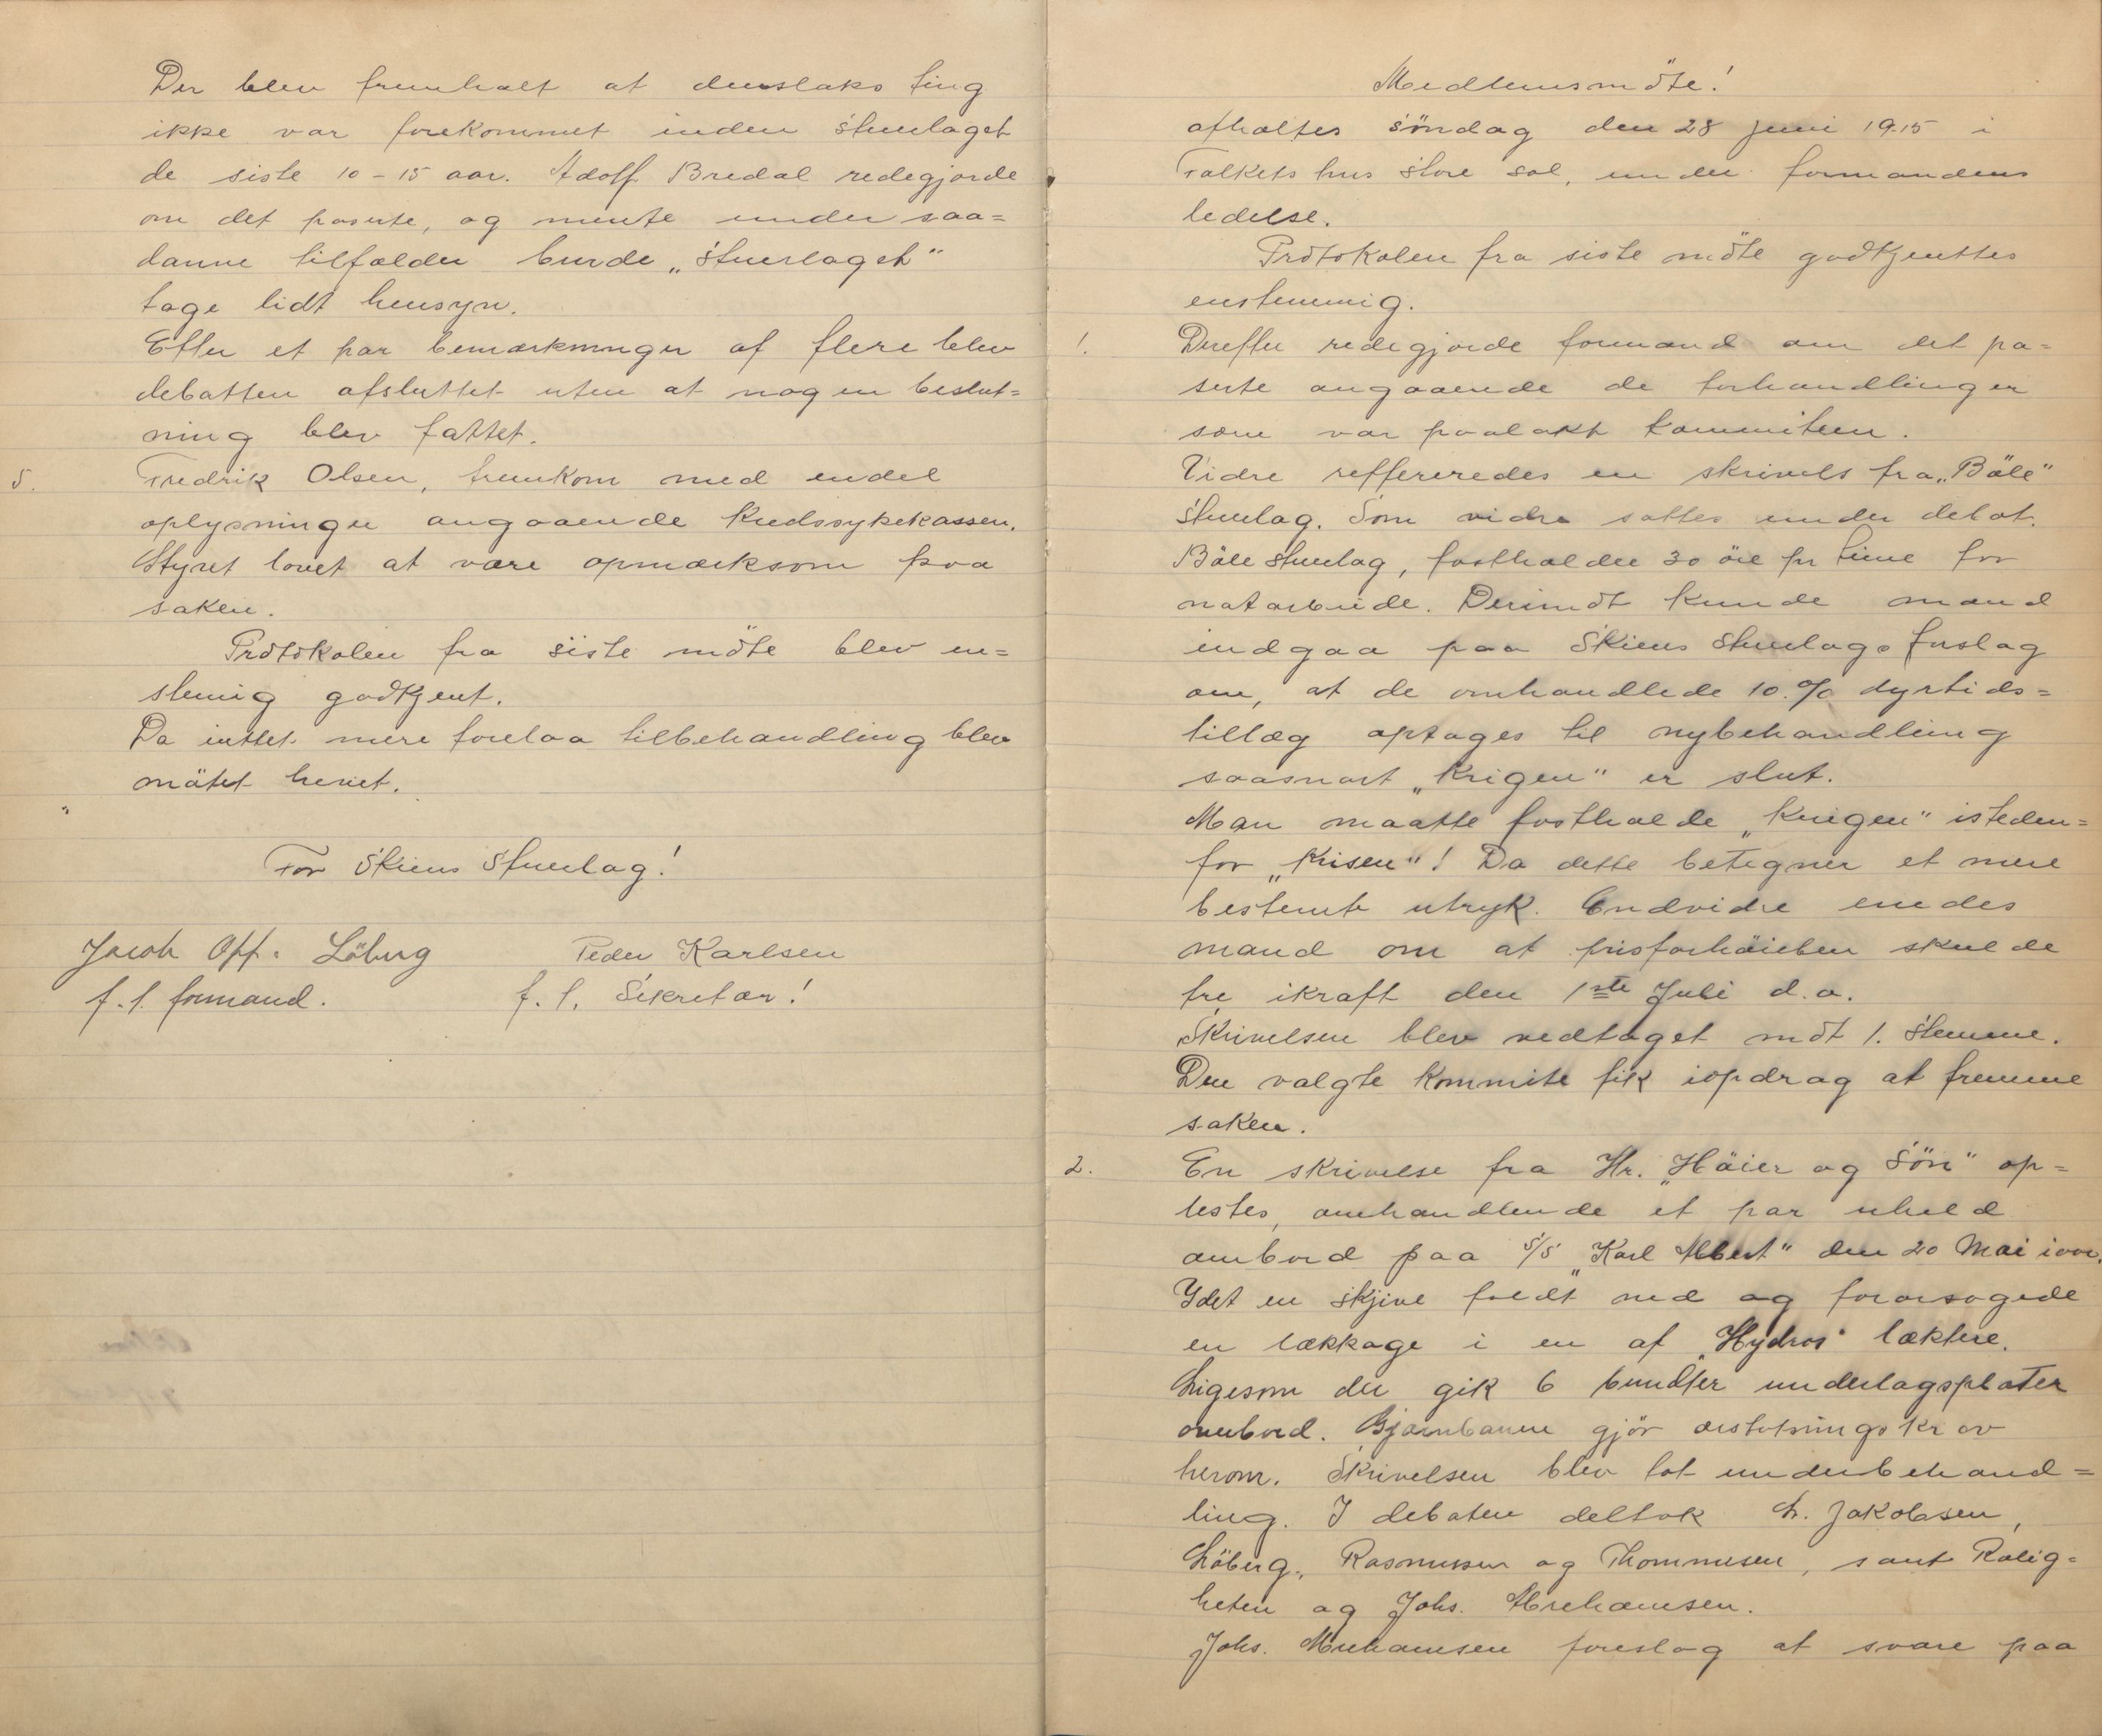 Der blev fremholt at denslaks ting
ikke var forekommet inden Stuerlaget
de siste 10-15 aar. Adolf Bredal redegjorde
om det paserte, og mente under saa=
danne tilfælder burde „Stuerlaget"
tage lidt hensyn.
Efter et par bemærkninger af flere blev
debatten afsluttet uten at nogen beslut=
ning blev fattet.
5. Fredrik Olsen, fremkom med endel
oplysninger angaaende Kredssykekassen.
Styret lovet at være opmærksom paa
saken.
Protokolen fra siste möte blev en=
stemig godkjent.
Da inttet mere forelaa tilbehandling blev
mötet hevet.
For Skiens Stuerlag!
Jacob Opf. Löberg Peder Karlsen
f.t. formand. f.t. Sekretær!
Medlemsmöte!
afholtes söndag den 28 juni 1915 i
Folkets hus store sal, under formandens
ledelse.
Protokolen fra siste möte godkjenttes
enstemmig.
1. Derefter redegjorde formand om det pa=
serte angaaende de forhandlinger
som var paalakt kommiteen.
Vidre reffereredes en skrivels fra „Böle"
Stuerlag. Som vidre sattes under debat.
Böle Stuerlag, fastholder 30 öre pr time for
natarbeide. Derimot kunde mand
indgaa paa Skiens Stuerlags forslag
om, at de omhandlede 10.% dyrtids=
tillæg optages til nybehandling
saasnart „Krigen" er slut.
Man maatte fastholde „Krigen" isteden=
for „Krisen"! Da dette betegner et mere
bestemt utryk. Endvidre enedes
mand om at prisforhöielsen skulde
tre ikraft den 1ste Juli d.a.
Skrivelsen blev vedtaget mot 1. Stemme.
Den valgte kommite fik iopdrag at fremme
saken.
2. En skrivelse fra Hr. „Höier og Sön" op=
lestes, omhandlende et par uheld
ombord paa S/S „Karl Albert" den 20 Mai
Idet en skjive faldt ned og foraarsagede
en lækkage i en af „Hydros" læktere.
Ligesom der gik 6 bundter underlagsplater
overbord. Gjærnbanen gjör erstatningskrav
herom. Skrivelsen blev tat underbehand=
ling. I debaten deltok Chr. Jakobsen,
Löberg, Rasmussen og Thommesen, samt Rolig=
heten og Johs. Abrehamsen.
Johs. Abrehamsen foreslog at svare paa